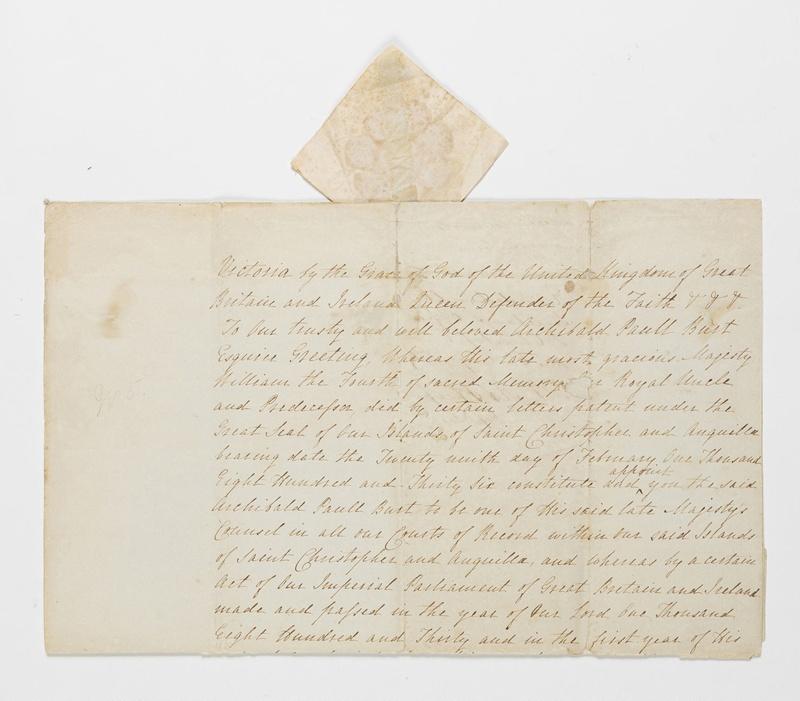 Victoria by the Grace of God of the United Kingdom of Great
Britain and Ireland Queen Defender of the Faith & & &
To Our trusty and well beloved Archibald Paull Burt
Esquire Greeting, Whereas His late most gracious Majesty
William the Fourth of sacred Memory Our Royal Uncle
and Predecessor, did by certain letters patent under the
Great Seal of Our Islands of Saint Christopher and Anguilla
bearing date the Twenty ninth day of February, One Thousand
Eight Hundred and Thirty Six constitute and appoint you the said
Archibald Paull Burt to be one of His said late Majesty's
Counsel in all our Courts of Record within our said Islands
of Saint Christopher and Anguilla, and whereas by a certain
Act of Our Imperial Parliament of Great Britain and Ireland
made and passed in the year of Our Lord One Thousand
Eight Hundred and Thirty and in the first year of His